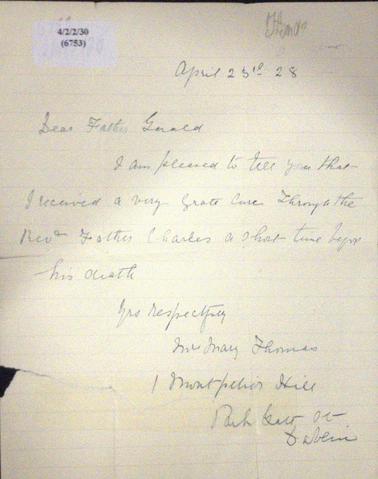 4/2/2/30
(6753)
April 23rd 28
Dear Father Gerald
I am pleased to tell you that
I received a very Grate Cure Through the
Revd Father Charles a short time before
his death
Yrs Respectfully
Mrs Mary Thomas
1 Montpelier Hill
Park Gate St
Dublin